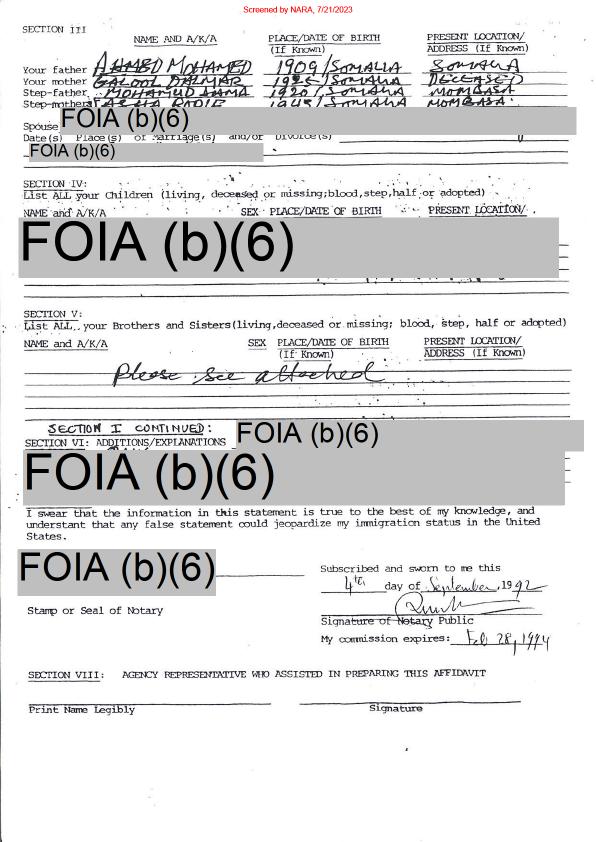 Screened by NARA, 7/21/2023
SECTION III
NAME AND A/K/A PLACE/DATE OF BIRTH PRESENT LOCATION/
(If Known) ADDRESS (If Known)
Your father AHMED MOHAMED 1909/SOMALIA SOMALIA
Your mother DALMAR /SOMALIA DECEASED
Step-father MOHAMUD JAMA 1920/SOMALIA MOMBASA
Step-mother /SOMALIA MOMBASA
Spouse FOIA (b)(6)
Date(s) Place(s) of Marriage(s) and/or Divorce(s)
FOIA (b)(6)
SECTION IV:
List ALL your Children (living, deceased or missing;blood,step,half or adopted)
NAME and A/K/A SEX PLACE/DATE OF BIRTH PRESENT LOCATION/
FOIA (b)(6)
SECTION V:
List ALL your Brothers and Sisters(living,deceased or missing; blood, step, half or adopted)
NAME and A/K/A SEX PLACE/DATE OF BIRTH PRESENT LOCATION/
(If Known) ADDRESS (If Known)
Please see attached
SECTION I CONTINUED:
SECTION VI: ADDITIONS/EXPLANATIONS FOIA (b)(6)
FOIA (b)(6)
I swear that the information in this statement is true to the best of my knowledge, and
understand that any false statement could jeopardize my immigration status in the United
States.
FOIA (b)(6)
Subscribed and sworn to me this
4th day of September, 1992
Stamp or Seal of Notary
Signature of Notary Public
My commission expires: Feb 28, 1994
SECTION VIII: AGENCY REPRESENTATIVE WHO ASSISTED IN PREPARING THIS AFFIDAVIT
Print Name Legibly Signature